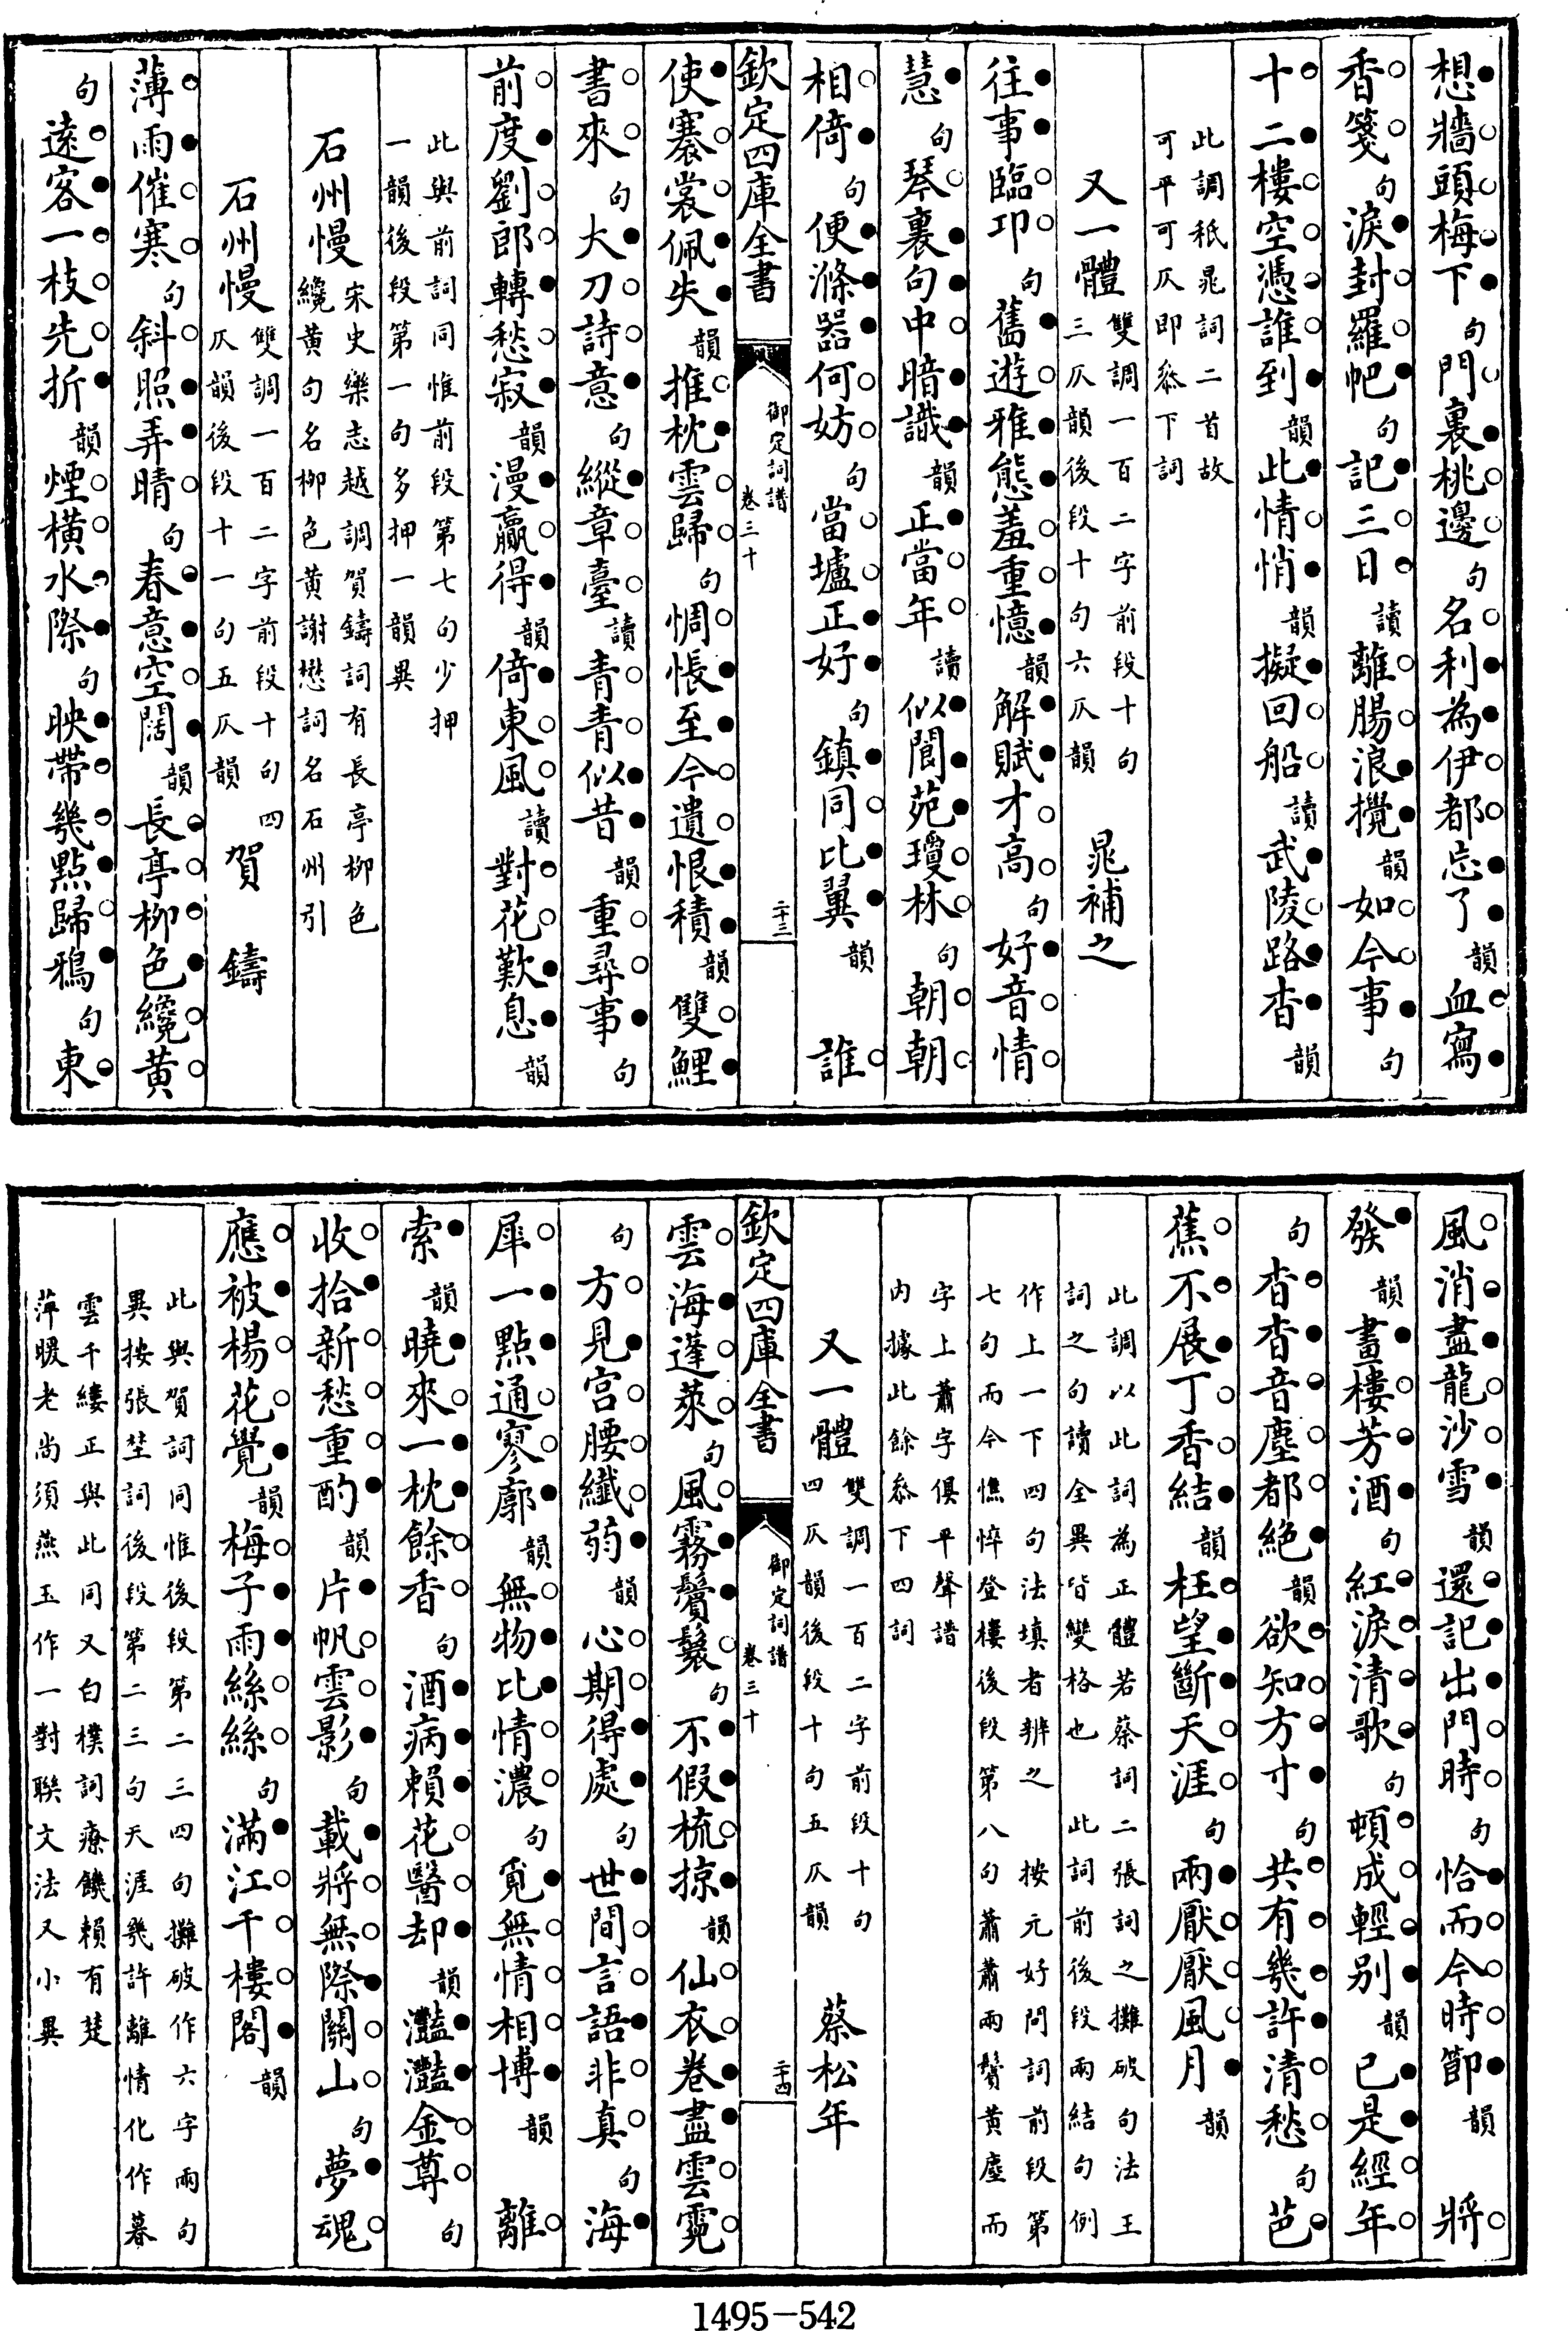 想牆頭梅下句門裏桃邊句名利為伊都忘了韻血寫
香箋句淚封羅帊句記三日讀離腸浪攪韻如今事句
十二樓空憑誰到韻此情悄韻擬回船讀武陵路杳韻
此調秪晁詞二首故
可平可仄即叅下詞
又一體雙調一百二字前段十句
三仄韻後段十句六仄韻晁補之
往事臨卭句舊遊雅態羞重憶韻解賦才高句好音情
慧句琴裏句中暗識韻正當年讀似閬苑瓊林句朝朝
相倚句便滌器何妨句當壚正好句鎮同比翼韻誰
欽定四庫全書御定詞譜卷三十二十三
使褰裳佩失韻推枕雲歸句惆悵至今遺恨積韻雙鯉
書來句大刀詩意句縱章臺讀青青似昔韻重尋事句
前度劉郎轉愁寂韻漫贏得韻倚東風讀對花歎息韻
此與前詞同惟前段第七句少押
一韻後段第一句多押一韻異
石州慢宋史樂志越調賀鑄詞有長亭柳色
纔黄句名柳色黄謝懋詞名石州引
石州慢雙調一百二字前段十句四
仄韻後段十一句五仄韻賀鑄
薄雨催寒句斜照弄晴句春意空闊韻長亭柳色纔黄
句逺客一枝先折韻煙橫水際句映帶幾點歸鴉句東
風消盡龍沙雪韻還記出門時句恰而今時節韻將
發韻畫樓芳酒句紅淚清歌句頓成輕别韻已是經年
句杳杳音塵都絶韻欲知方寸句共有幾許清愁句芭
蕉不展丁香結韻枉望斷天涯句兩厭厭風月韻
此調以此詞為正體若蔡詞二張詞之攤破句法王
詞之句讀全異皆變格也此詞前後段兩結句例
作上一下四句法填者辨之按元好問詞前段第
七句而今憔悴登樓後段第八句蕭蕭兩鬢黄塵而
字上蕭字俱平聲譜
内據此餘叅下四詞
又一體雙調一百二字前段十句
四仄韻後段十句五仄韻蔡松年
欽定四庫全書御定詞譜卷三十二十四
雲海蓬萊句風霧鬢鬟句不假梳掠韻仙衣卷盡雲霓
句方見宫腰纎弱韻心期得處句世間言語非真句海
犀一點通寥廓韻無物比情濃句覓無情相博韻離
索韻曉來一枕餘香句酒病賴花醫却韻灩灩金尊句
收拾新愁重酌韻片帆雲影句載將無際關山句夢魂
應被楊花覺韻梅子雨絲絲句滿江千樓閣韻
此與賀詞同惟後段第二三四句攤破作六字兩句
異按張埜詞後段第二三句天涯幾許離情化作暮
雲千縷正與此同又白樸詞療饑賴有楚
萍暖老尚須燕玉作一對聯文法又小異
1495-542